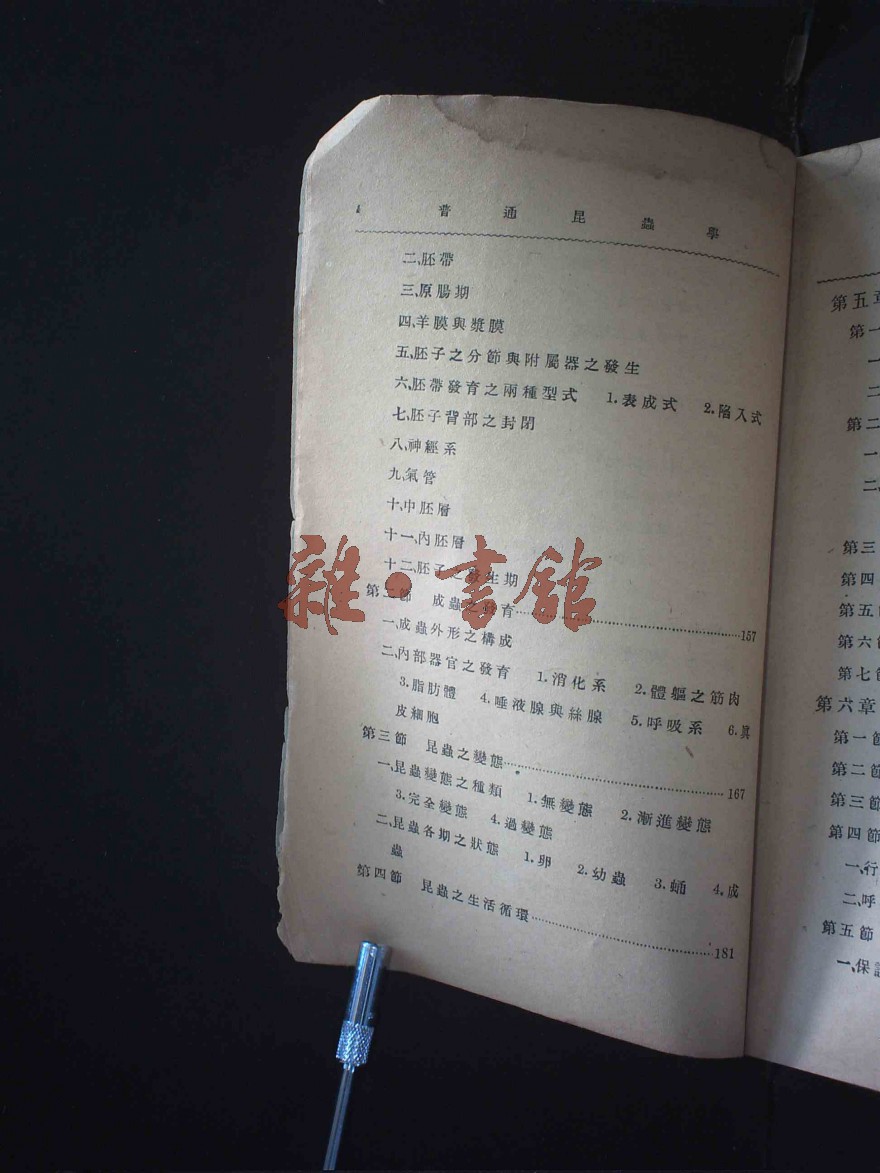 4 普通昆蟲學
二、胚帶
三、原腸期
四、羊膜與漿膜
五、胚子之分節與附屬器之發生
六、胚帶發育之兩種型式 1.表成式 2.陷入式
七、胚子背部之封閉
八、神經系
九、氣管
十、中胚層
十一、內胚層
十二、胚子之發生期
第二節 成蟲之發育……157
一、成蟲外形之構成
二、內部器官之發育 1.消化系 2.體軀之筋肉
3.脂肪體 4.唾液腺與絲腺 5.呼吸系 6.眞
皮細胞
第三節 昆蟲之變態……167
一、昆蟲變態之種類 1.無變態 2.漸進變態
3.完全變態 4.過變態
二、昆蟲各期之狀態 1.卵 2.幼蟲 3.蛹 4.成
蟲
第四節 昆蟲之生活循環……181
雜·書館
第五章
第一
一
二
第二
一
二、
第三
第四
第五
第六節
第七節
第六章
第一節
第二節
第三節
第四節
一、行
二、呼
第五節
一、保護